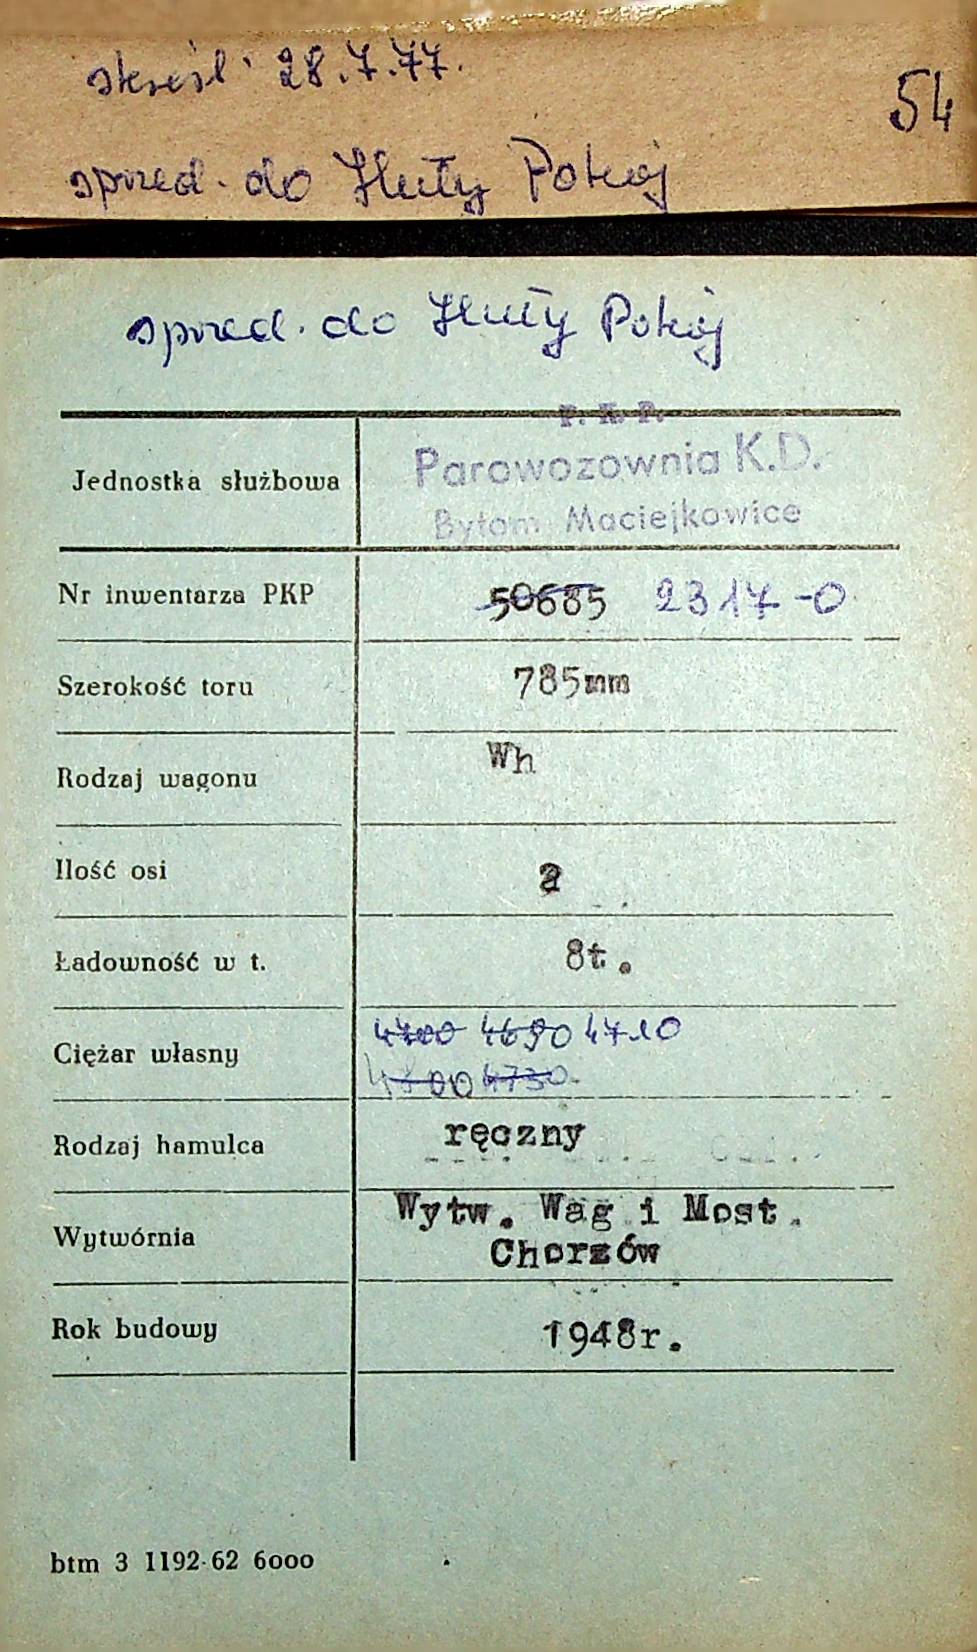 skreśl. 28.7.77.
54
sprzed. do Huty Pokój
sprzed. do Huty Pokój
P. K. P.
Jednostka służbowa Parowozownia K.D.
Bytom Maciejkowice
Nr inwentarza PKP 50685 2317-0
Szerokość toru 785mm
Rodzaj wagonu Wh
Ilość osi 2
Ładowność w t. 8t.
Ciężar własny 4700 4690 4710
4730
Rodzaj hamulca ręczny
Wytwórnia Wytw. Wag i Most.
Chorzów
Rok budowy 1948r.
btm 3 1192-62 6000